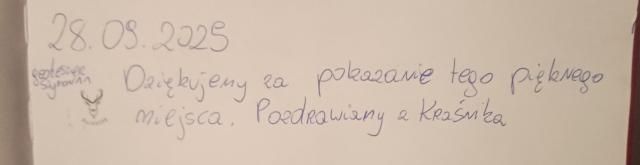 28.09.2025
Dziękujemy za pokazanie tego pięknego
miejsca. Pozdrawiamy z Kraśnika